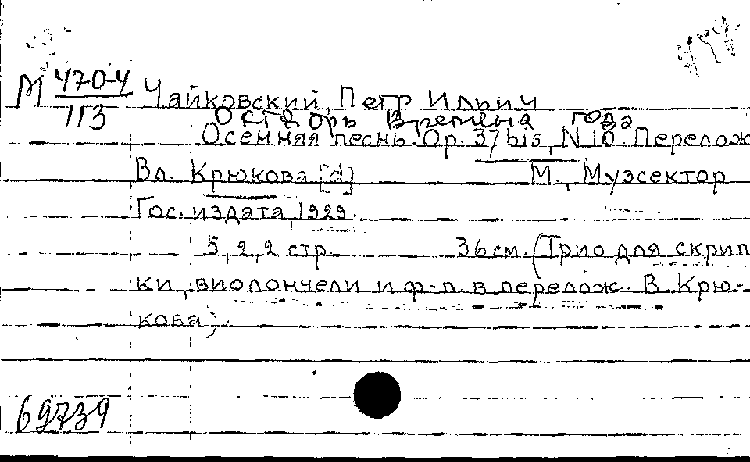 М 470-4
113
Чайковский, Петр Ильич
Октябрь Времена года
Осенняя песнь. Op. 37 bis, N 10. Перелож.
Вл. Крюкова [d] М., Музсектор
Гос. издата, 1929.
5, 2, 2 стр. 36 см. (Трио для скрип-
ки, виолончели и ф-п. в перелож. В. Крю-
кова).
69739